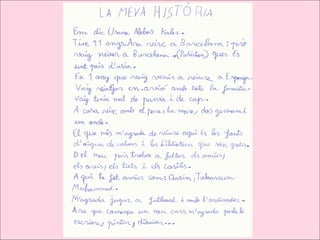 LA MEVA HISTÒRIA
Em dic Usama Abbas Kaler.
Tinc 11 anys. Ara visc a Barcelona; però
vaig néixer a Barcelona (Pakistan) que és
un país d'asia.
Fa 1 any que vaig venir a viure a Espanya.
Vaig viatjar en avió amb tota la família.
Vaig tenia mal de panxa i de cap.
A casa visc amb el pare, la mare, dos germans i
un oncle.
El que més m'agrada de viure aquí és les fonts
d'aigua de colors i les biblioteques que són gratis.
Del meu país trobo a faltar els amics,
els avis, els tiets i els cosins.
Aquí he fet amics com: Qasim, Tabassum
Muhammad.
M'agrada jugar a futbol i amb l'ordinador.
Ara que comença un nou curs m'agrada parla
escriure, pintar, dibuixar...